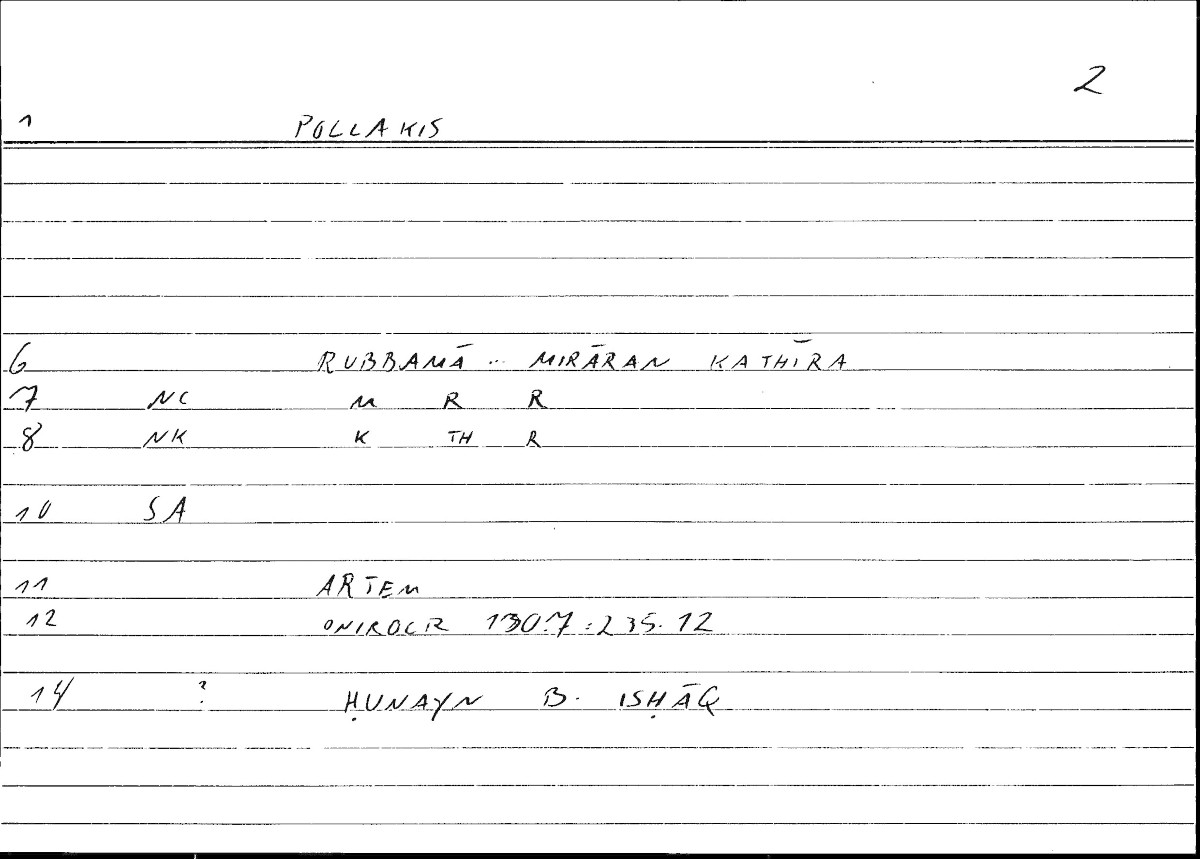 2
1 POLLAKIS
6 RUBBAMĀ .. MIRĀRAN KATHĪRA
7 NC M R R
8 NK K TH R
10 SA
11 ARTEM
12 ONIROCR 130.7:235.12
14 ? ḤUNAYN B. ISḤĀQ